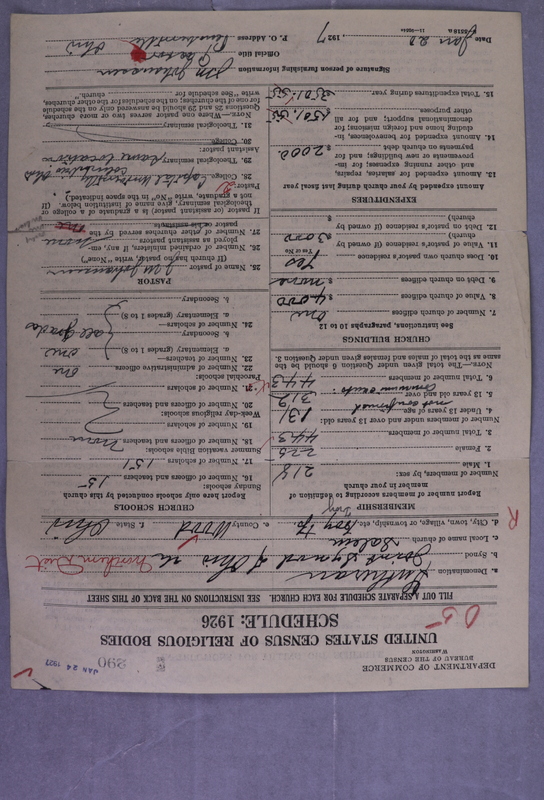 DEPARTMENT OF COMMERCE
BUREAU OF THE CENSUS
WASHINGTON
290
JAN 24 1927
UNITED STATES CENSUS OF RELIGIOUS BODIES
SCHEDULE: 1926
FILL OUT A SEPARATE SCHEDULE FOR EACH CHURCH. SEE INSTRUCTIONS ON THE BACK OF THIS SHEET
a. Denomination Lutheran
b. Synod Joint Synod of Ohio Northern Dist
c. Local name of church Salem
d. City, town, village, or township, etc. Troy Tp. e. County Wood f. State Ohio
MEMBERSHIP
Report number of members according to definition of member in your church
Number of members, by sex:
1. Male 218
2. Female 225
3. Total number of members 443
Number of members under and over 13 years old:
4. Under 13 years of age 131 not confirmed
5. 13 years old and over 312
6. Total number of members 443
NOTE.—The total given under question 6 should be the same as the total of males and females given under question 3.
CHURCH BUILDINGS
See Instructions, paragraphs 10 to 12
7. Number of church edifices one
8. Value of church edifices $ 4,000
9. Debt on church edifices $ none
10. Does church own pastor's residence Yes
Yes or No
11. Value of pastor's residence (if owned by church) $ 3000
12. Debt on pastor's residence (if owned by church) $
EXPENDITURES
Amount expended by your church during last fiscal year
13. Amount expended for salaries, repairs, and other running expenses; for improvements or new buildings; and for payments on church debt $ 2000
14. Amount expended for benevolences, including home and foreign missions; for denominational support; and for all other purposes
15. Total expenditures during year
CHURCH SCHOOLS
Report here only schools conducted by this church
Sunday schools:
16. Number of officers and teachers 15
17. Number of scholars 151
Summer vacation Bible schools:
18. Number of officers and teachers none
19. Number of scholars
Week-day religious schools:
20. Number of officers and teachers
21. Number of scholars
Parochial schools:
22. Number of administrative officers one
23. Number of teachers—
a. Elementary (grades 1 to 8) one
b. Secondary
24. Number of scholars—
a. Elementary (grades 1 to 8) all grades
b. Secondary
PASTOR
25. Name of pastor
(If church has no pastor, write "None")
26. Number of ordained ministers, if any, employed as assistant pastors none
27. Number of other churches served by the pastor
If pastor (or assistant pastor) is a graduate of a college or theological seminary, give name of institution below. (If not a graduate, write "No" in the space indicated.)
Pastor:
28. College Capital University
29. Theological seminary same location
Assistant pastor:
30. College
31. Theological seminary
NOTE.—Where one pastor serves two or more churches, Questions 28 and 29 should be answered only on the schedule for one of the churches; on the schedules for the other churches, write "See schedule for church."
Signature of person furnishing information
Official title Pastor
P. O. Address Pemberville Ohio
Date Jan 22, 1927